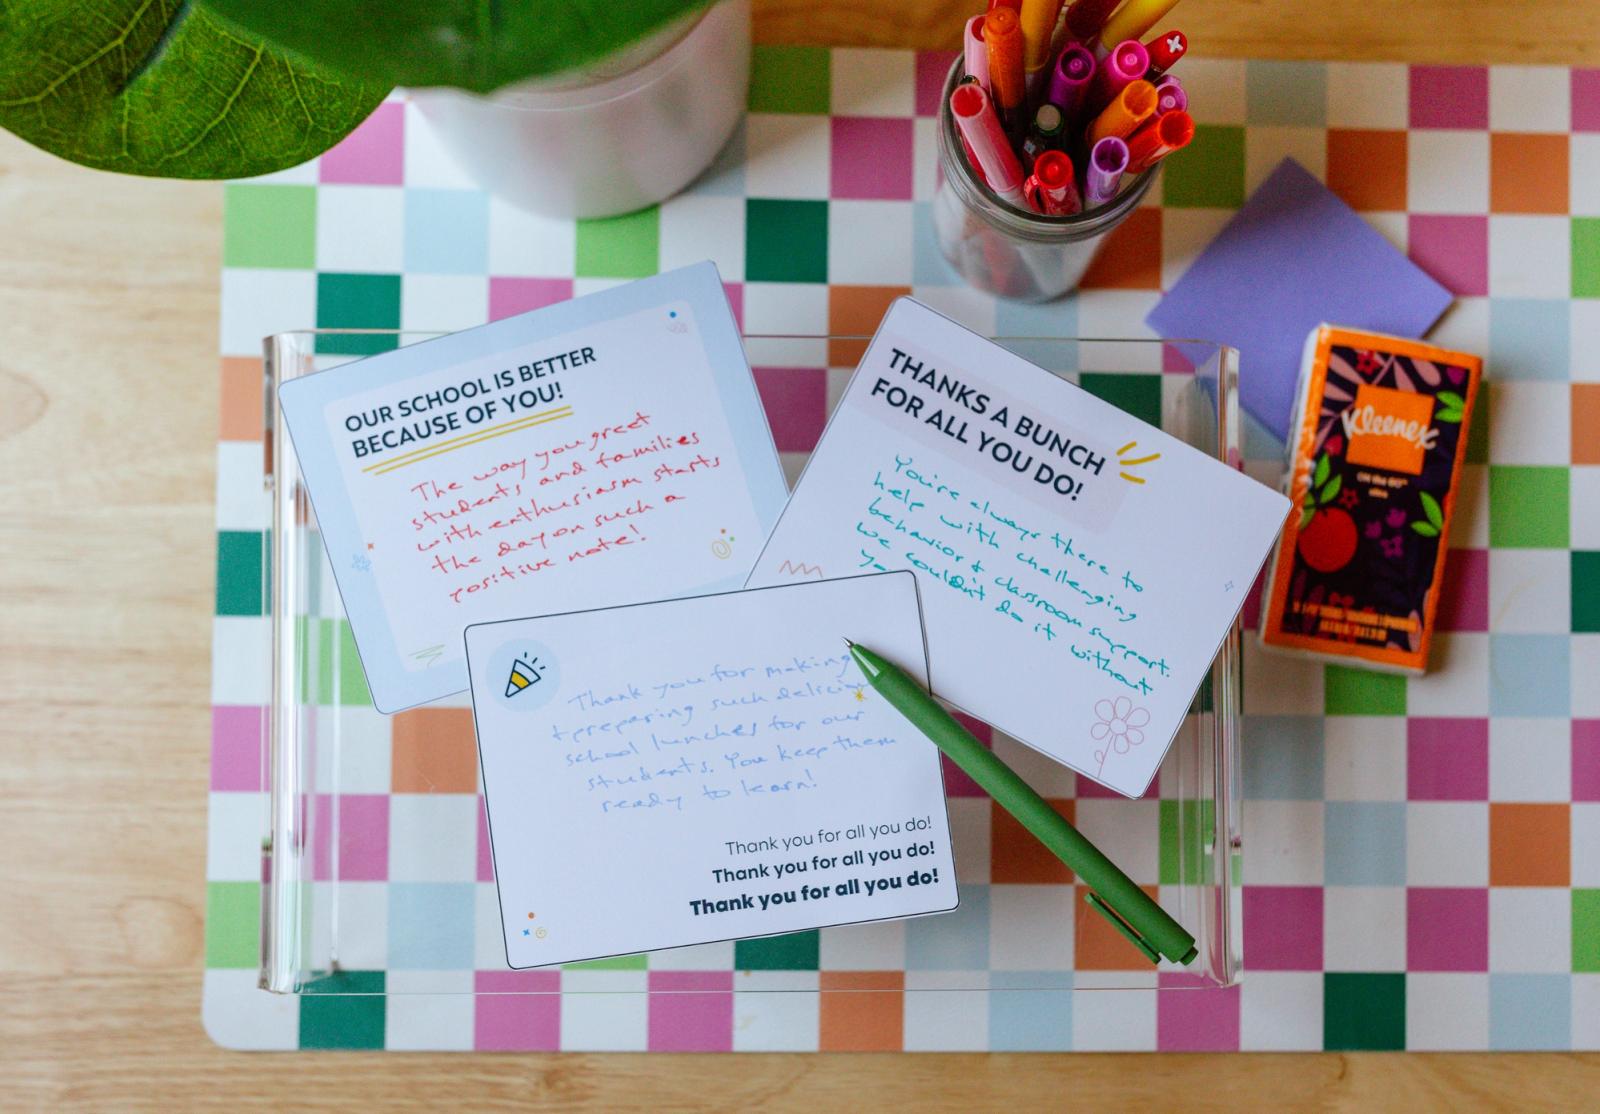 OUR SCHOOL IS BETTER
BECAUSE OF YOU!
The way you greet
students and families
with enthusiasm starts
the day on such a
positive note!
THANKS A BUNCH
FOR ALL YOU DO!
You're always there to
help with challenging
behavior & classroom support.
we couldn't do it without
you
Thank you for making
+ preparing such
school lunches for our
students. You keep them
ready to learn!
Thank you for all you do!
Thank you for all you do!
Thank you for all you do!
Kleenex
ON the GO